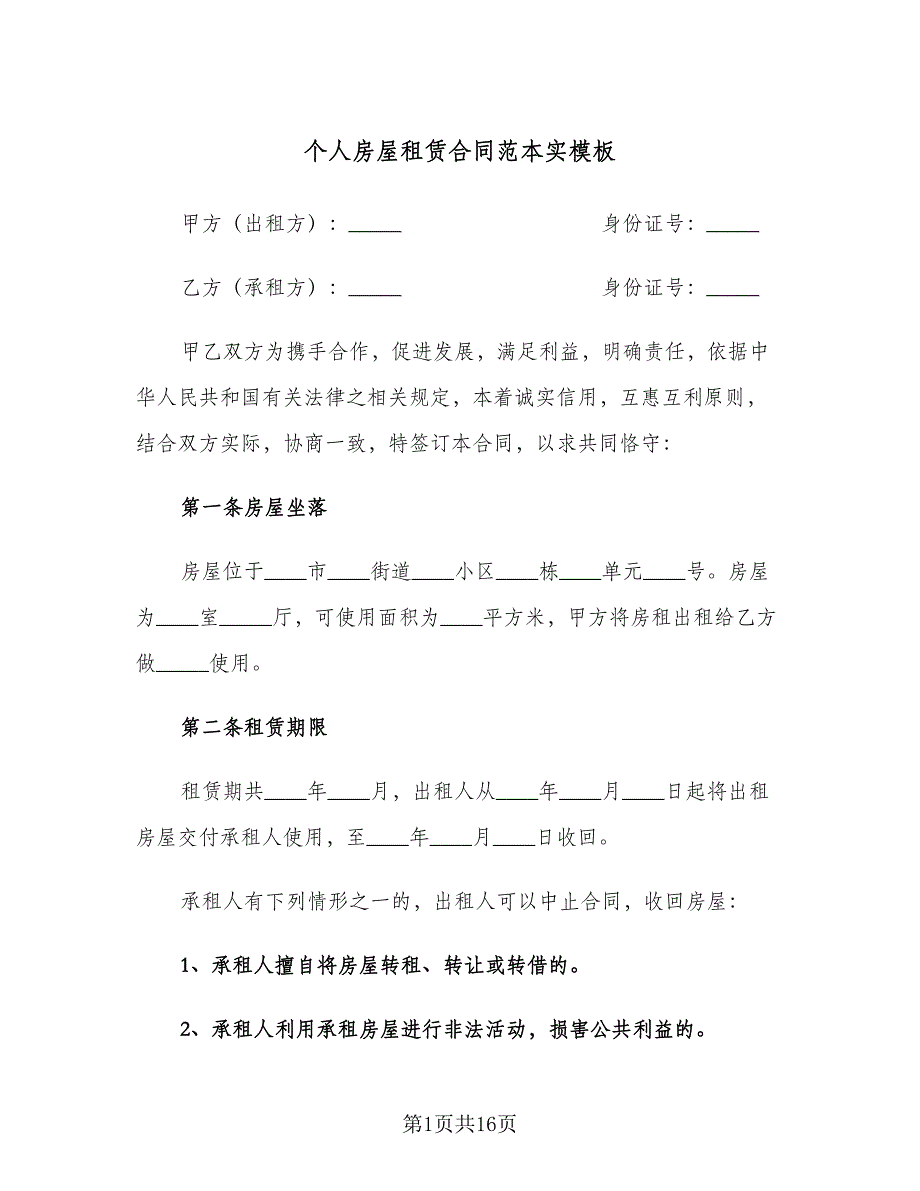 个人房屋租赁合同范本实模板
甲方（出租方）：_____ 身份证号：_____
乙方（承租方）：_____ 身份证号：_____
甲乙双方为携手合作，促进发展，满足利益，明确责任，依据中
华人民共和国有关法律之相关规定，本着诚实信用，互惠互利原则，
结合双方实际，协商一致，特签订本合同，以求共同恪守：
第一条房屋坐落
房屋位于____市____街道____小区____栋____单元____号。房屋
为____室_____厅，可使用面积为____平方米，甲方将房租出租给乙方
做_____使用。
第二条租赁期限
租赁期共____年____月，出租人从____年____月____日起将出租
房屋交付承租人使用，至____年____月____日收回。
承租人有下列情形之一的，出租人可以中止合同，收回房屋：
1、承租人擅自将房屋转租、转让或转借的。
2、承租人利用承租房屋进行非法活动，损害公共利益的。
第1页共16页